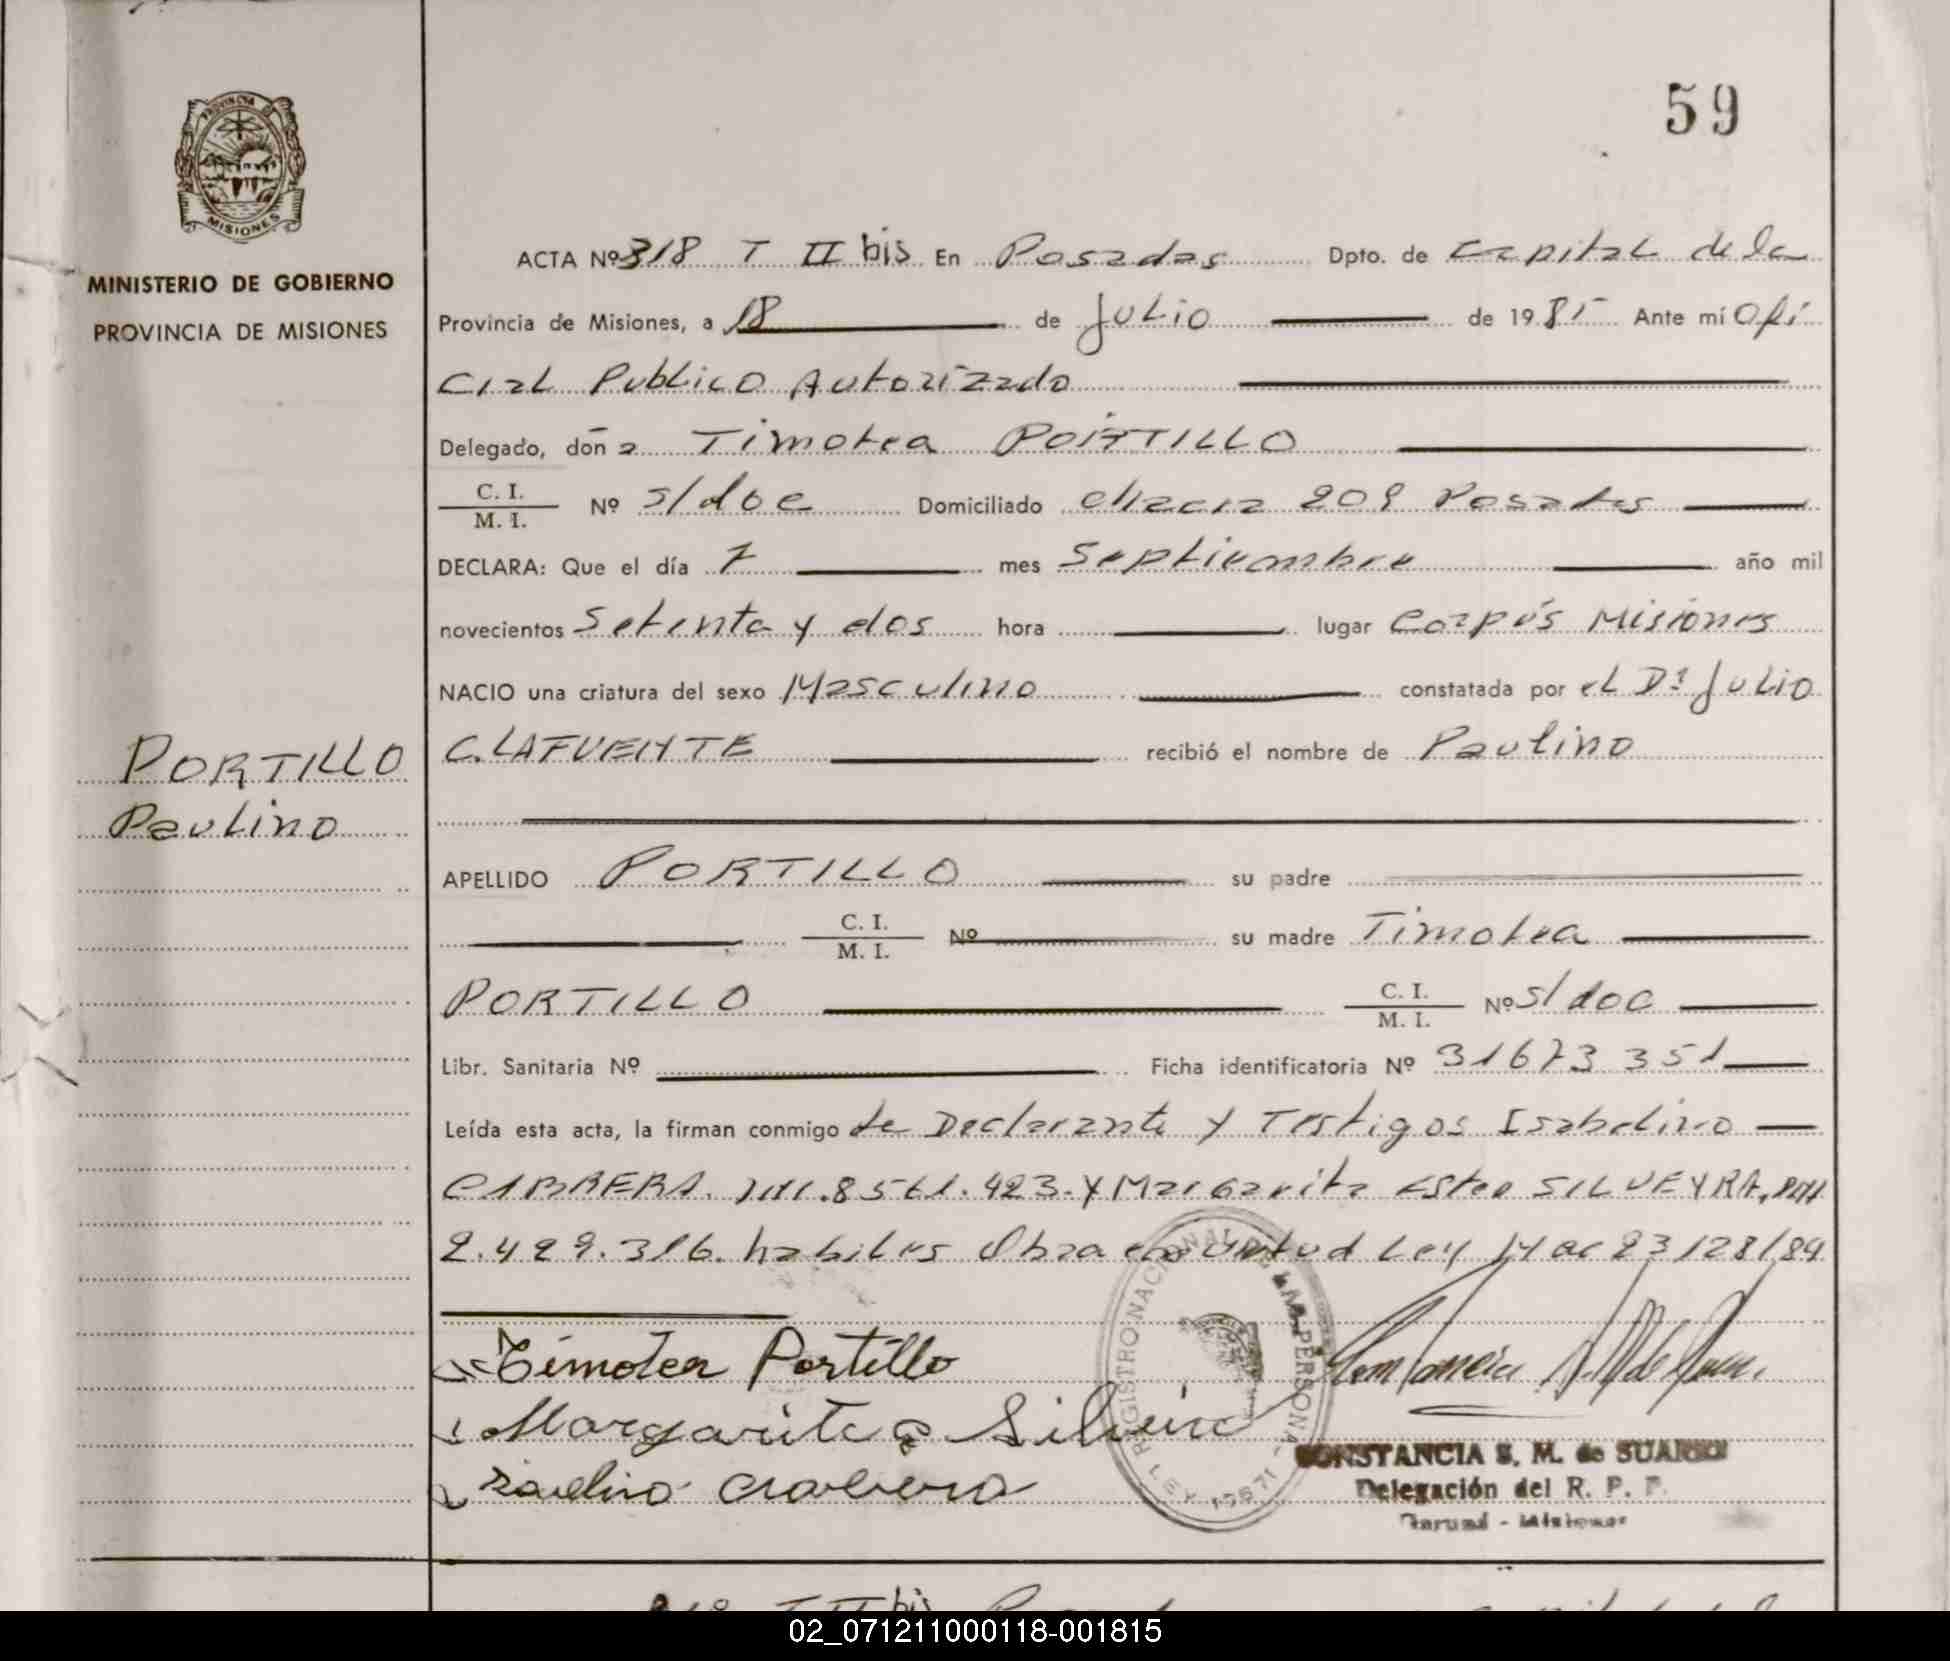 59
PROVINCIA DE
MISIONES
MINISTERIO DE GOBIERNO
PROVINCIA DE MISIONES
ACTA Nº 318 T II bis En Posadas Dpto. de Capital de la
Provincia de Misiones, a 18 de Julio de 1985 Ante mí Ofi
cial Publico Autorizado
Delegado, doña Timotea PORTILLO
C. I.
M. I. Nº s/doc Domiciliado chacra 209 Posadas
DECLARA: Que el día 7 mes Septiembre año mil
novecientos Setenta y dos hora lugar Corpus Misiones
NACIO una criatura del sexo Masculino constatada por el Dr Julio
C. LAFUENTE recibió el nombre de Paulino
PORTILLO
Paulino
APELLIDO PORTILLO su padre
C. I.
M. I. Nº su madre Timotea
PORTILLO C. I.
M. I. Nº s/doc
Libr. Sanitaria Nº Ficha identificatoria Nº 31673 351
Leída esta acta, la firman conmigo la Declarante y Testigos Isabelino
CABRERA. Y Margarita Ester SILVEYRA,
habiles Obra en virtud Ley Nac 23128/84
Timotea Portillo
Margarita Silveira
REGISTRO NACIONAL DE LAS PERSONAS
CONSTANCIA S. M. de SUAREZ
Delegación del R. P. P.
02_071211000118-001815